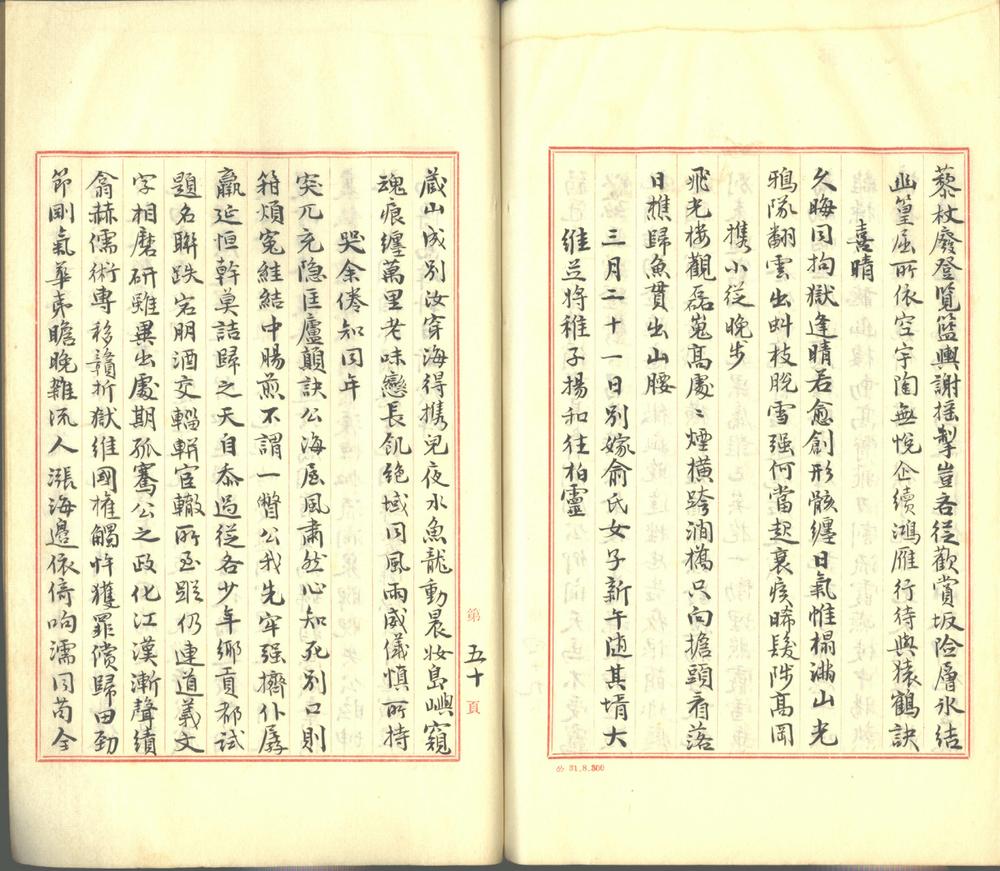 藜杖廢登覽籃輿謝搖掣豈吝從歡賞坂險層氷結
幽篁屈所依空宇陶無悅企續鴻雁行待與猿鶴訣
喜晴
久晦同拘獄逢晴若愈創形骸纏日氣惟榻滿山光
鴉隊翻雲出蚪枝脫雪强何當起衰疾晞髮陟高岡
携小從晚步
飛光樓觀磊嵬高處〻煙橫跨澗橋只向擔頭看落
日樵歸魚貫出山腰
三月二十一日別嫁俞氏女子新午随其壻大
維並將稚子揚和往柏靈
蔵山成別汝穿海得携兒夜水魚龍動晨妝島嶼窺
魂痕纏萬里老味戀長飢絶域同風雨威儀慎所持
哭余倦知同年
突兀充隐匡廬顛訣公海𢈪風肅然心知死別口則
箝煩冤絓結中腸煎不謂一瞥公我先牢强擠仆孱
羸延恒幹莫詰歸之天自忝過從各少年鄉貢都試
題名聯跌宕朋酒交輻輧宦轍所至蹤仍連道義文
字相磨研雖異出處期孤騫公之政化江漢漸聲績
翕赫儒術專移贛折獄維國權觸忤獲罪償歸田勁
節剛氣華夷瞻晚雜流人漲海邊依倚响濡同苟全
第
五十
頁
31.8.300